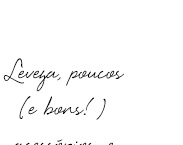 Leveza, poucos
(e bons!)